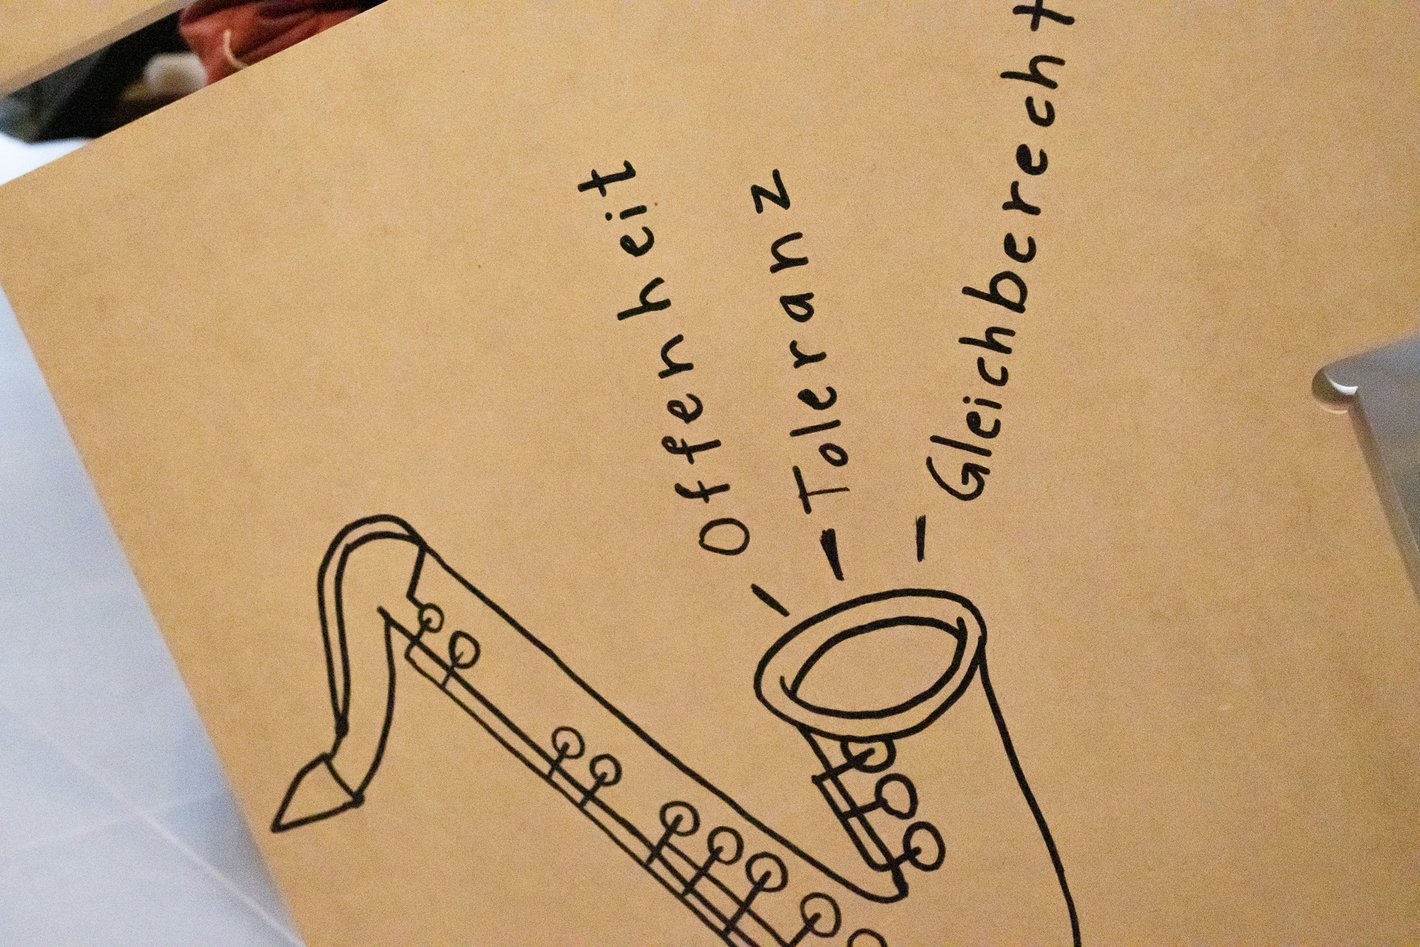 Offenheit
Toleranz
Gleichberecht